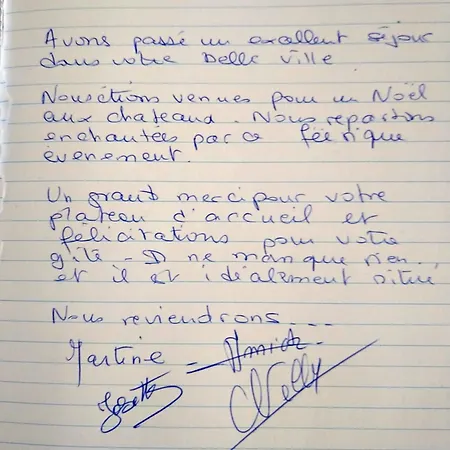 Avons passé un excellent séjour
dans votre belle ville
Nous étions venues pour un Noël
aux chateaux. Nous repartons
enchantées par ce féérique
évenement.
Un grand merci pour votre
plateau d'accueil et
félicitations pour votre
gîte - Il ne manque rien..
et il est idéalement situé
Nous reviendrons ---
Martine =
Nelly